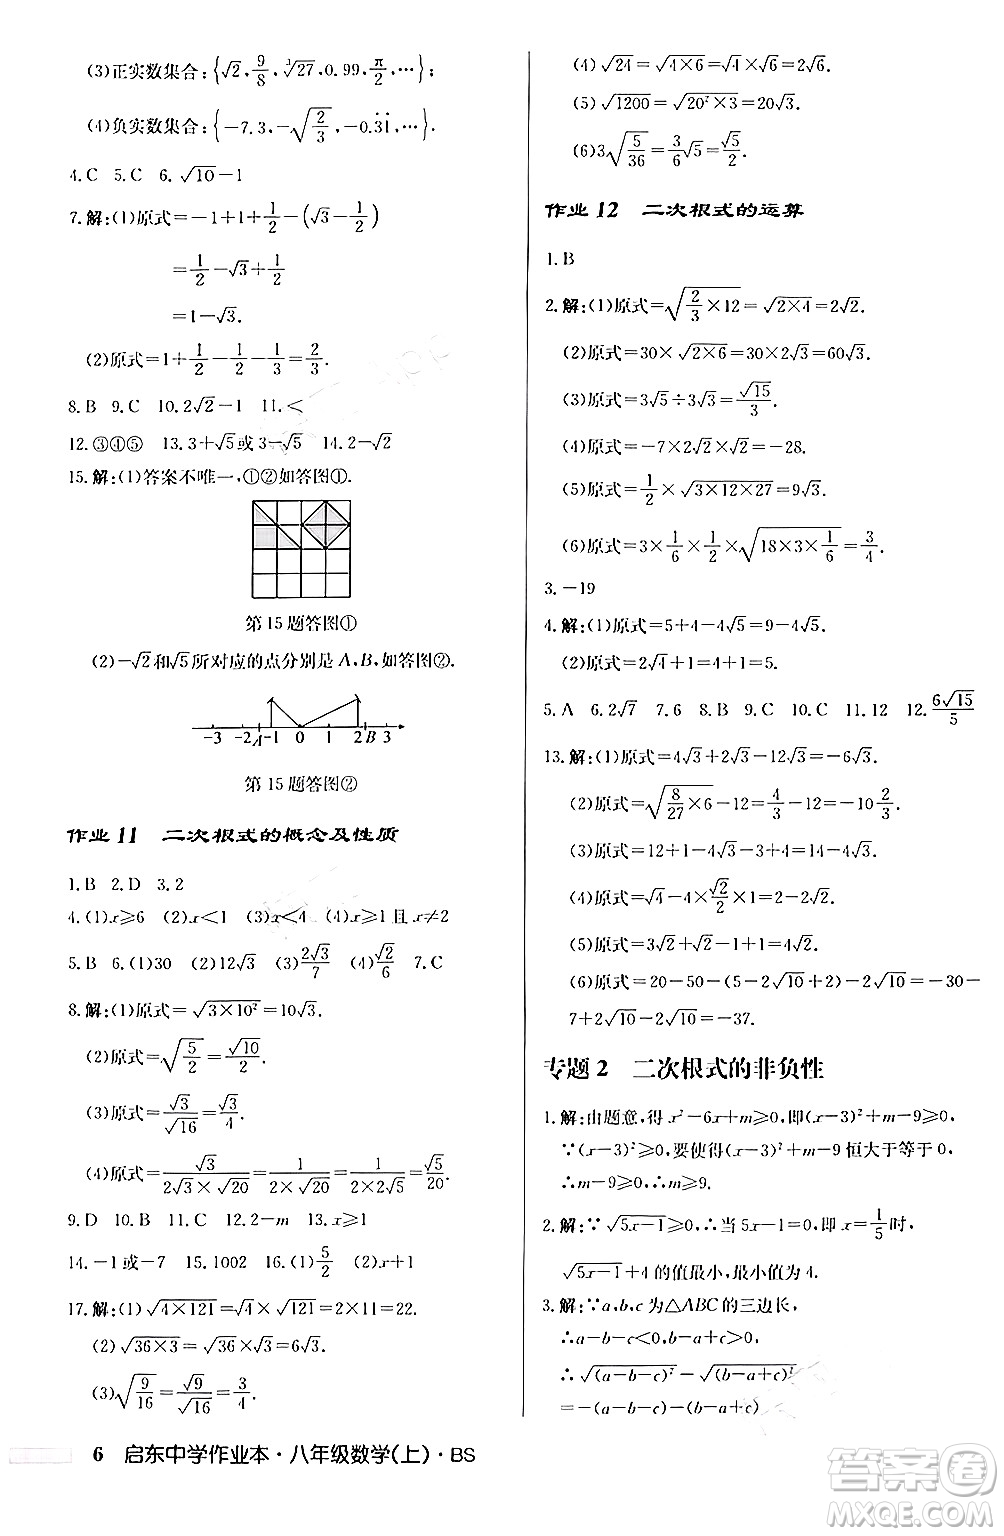 (3)正实数集合:{√2, 9/8, ³√27, 0.99, π/2, ⋯};
(4)负实数集合:{-7.3, -√(2/3), -0.3̇1̇, ⋯}.
4.C 5.C 6.√10-1
7.解:(1)原式=-1+1+1/2-(√3-1/2)
=1/2-√3+1/2
=1-√3.
(2)原式=1+1/2-1/2-1/3=2/3.
8.B 9.C 10.2√2-1 11.<
12.③④⑤ 13.3+√5或3-√5 14.2-√2
15.解:(1)答案不唯一,①②如答图①.
第15题答图①
(2)-√2和√5所对应的点分别是A,B,如答图②.
-3 -2 A -1 0 1 2 B 3
第15题答图②
作业11 二次根式的概念及性质
1.B 2.D 3.2
4.(1)x≥6 (2)x<1 (3)x<4 (4)x≥1且x≠2
5.B 6.(1)30 (2)12√3 (3)2√3/7 (4)√2/6 7.C
8.解:(1)原式=√(3×10²)=10√3.
(2)原式=√(5/2)=√10/2.
(3)原式=√3/√16=√3/4.
(4)原式=√3/(2√3×√20)=1/(2×√20)=1/(4√5)=√5/20.
9.D 10.B 11.C 12.2-m 13.x≥1
14.-1或-7 15.1002 16.(1)5/2 (2)x+1
17.解:(1)√(4×121)=√4×√121=2×11=22.
(2)√(36×3)=√36×√3=6√3.
(3)√(9/16)=√9/√16=3/4.
6 启东中学作业本·八年级数学(上)·BS
(4)√24=√(4×6)=√4×√6=2√6.
(5)√1200=√(20²×3)=20√3.
(6)3√(5/36)=3/6√5=√5/2.
作业12 二次根式的运算
1.B
2.解:(1)原式=√(2/3×12)=√(2×4)=2√2.
(2)原式=30×√(2×6)=30×2√3=60√3.
(3)原式=3√5÷3√3=√15/3.
(4)原式=-7×2√2×√2=-28.
(5)原式=1/2×√(3×12×27)=9√3.
(6)原式=3×1/6×1/2×√(18×3×1/6)=3/4.
3.-19
4.解:(1)原式=5+4-4√5=9-4√5.
(2)原式=2√4+1=4+1=5.
5.A 6.2√7 7.6 8.B 9.C 10.C 11.12 12.6√15/5
13.解:(1)原式=4√3+2√3-12√3=-6√3.
(2)原式=√(8/27×6)-12=4/3-12=-10 2/3.
(3)原式=12+1-4√3-12=1-4√3.
(4)原式=√4-4×√2/2+1=3-2√2.
(5)原式=3√2+√2-1+1=4√2.
(6)原式=20-50-(5-2√10+2)=-30-
7+2√10-2√10=-37.
专题2 二次根式的非负性
1.解:由题意,得x²-6x+m≥0,即(x-3)²+m-9≥0.
∵(x-3)²≥0,要使得(x-3)²+m-9恒大于等于0,
∴m-9≥0,∴m≥9.
2.解:∵√(5x-1)≥0,∴当5x-1=0,即x=1/5时,
√(5x-1)+4的值最小,最小值为4.
3.解:∵a,b,c为△ABC的三边长,
∴a-b-c<0,b-a-c<0.
∴√(a-b-c)²-√(b-a-c)²
=-(a-b-c)+(b-a-c)
答案圈
MXQE.COM